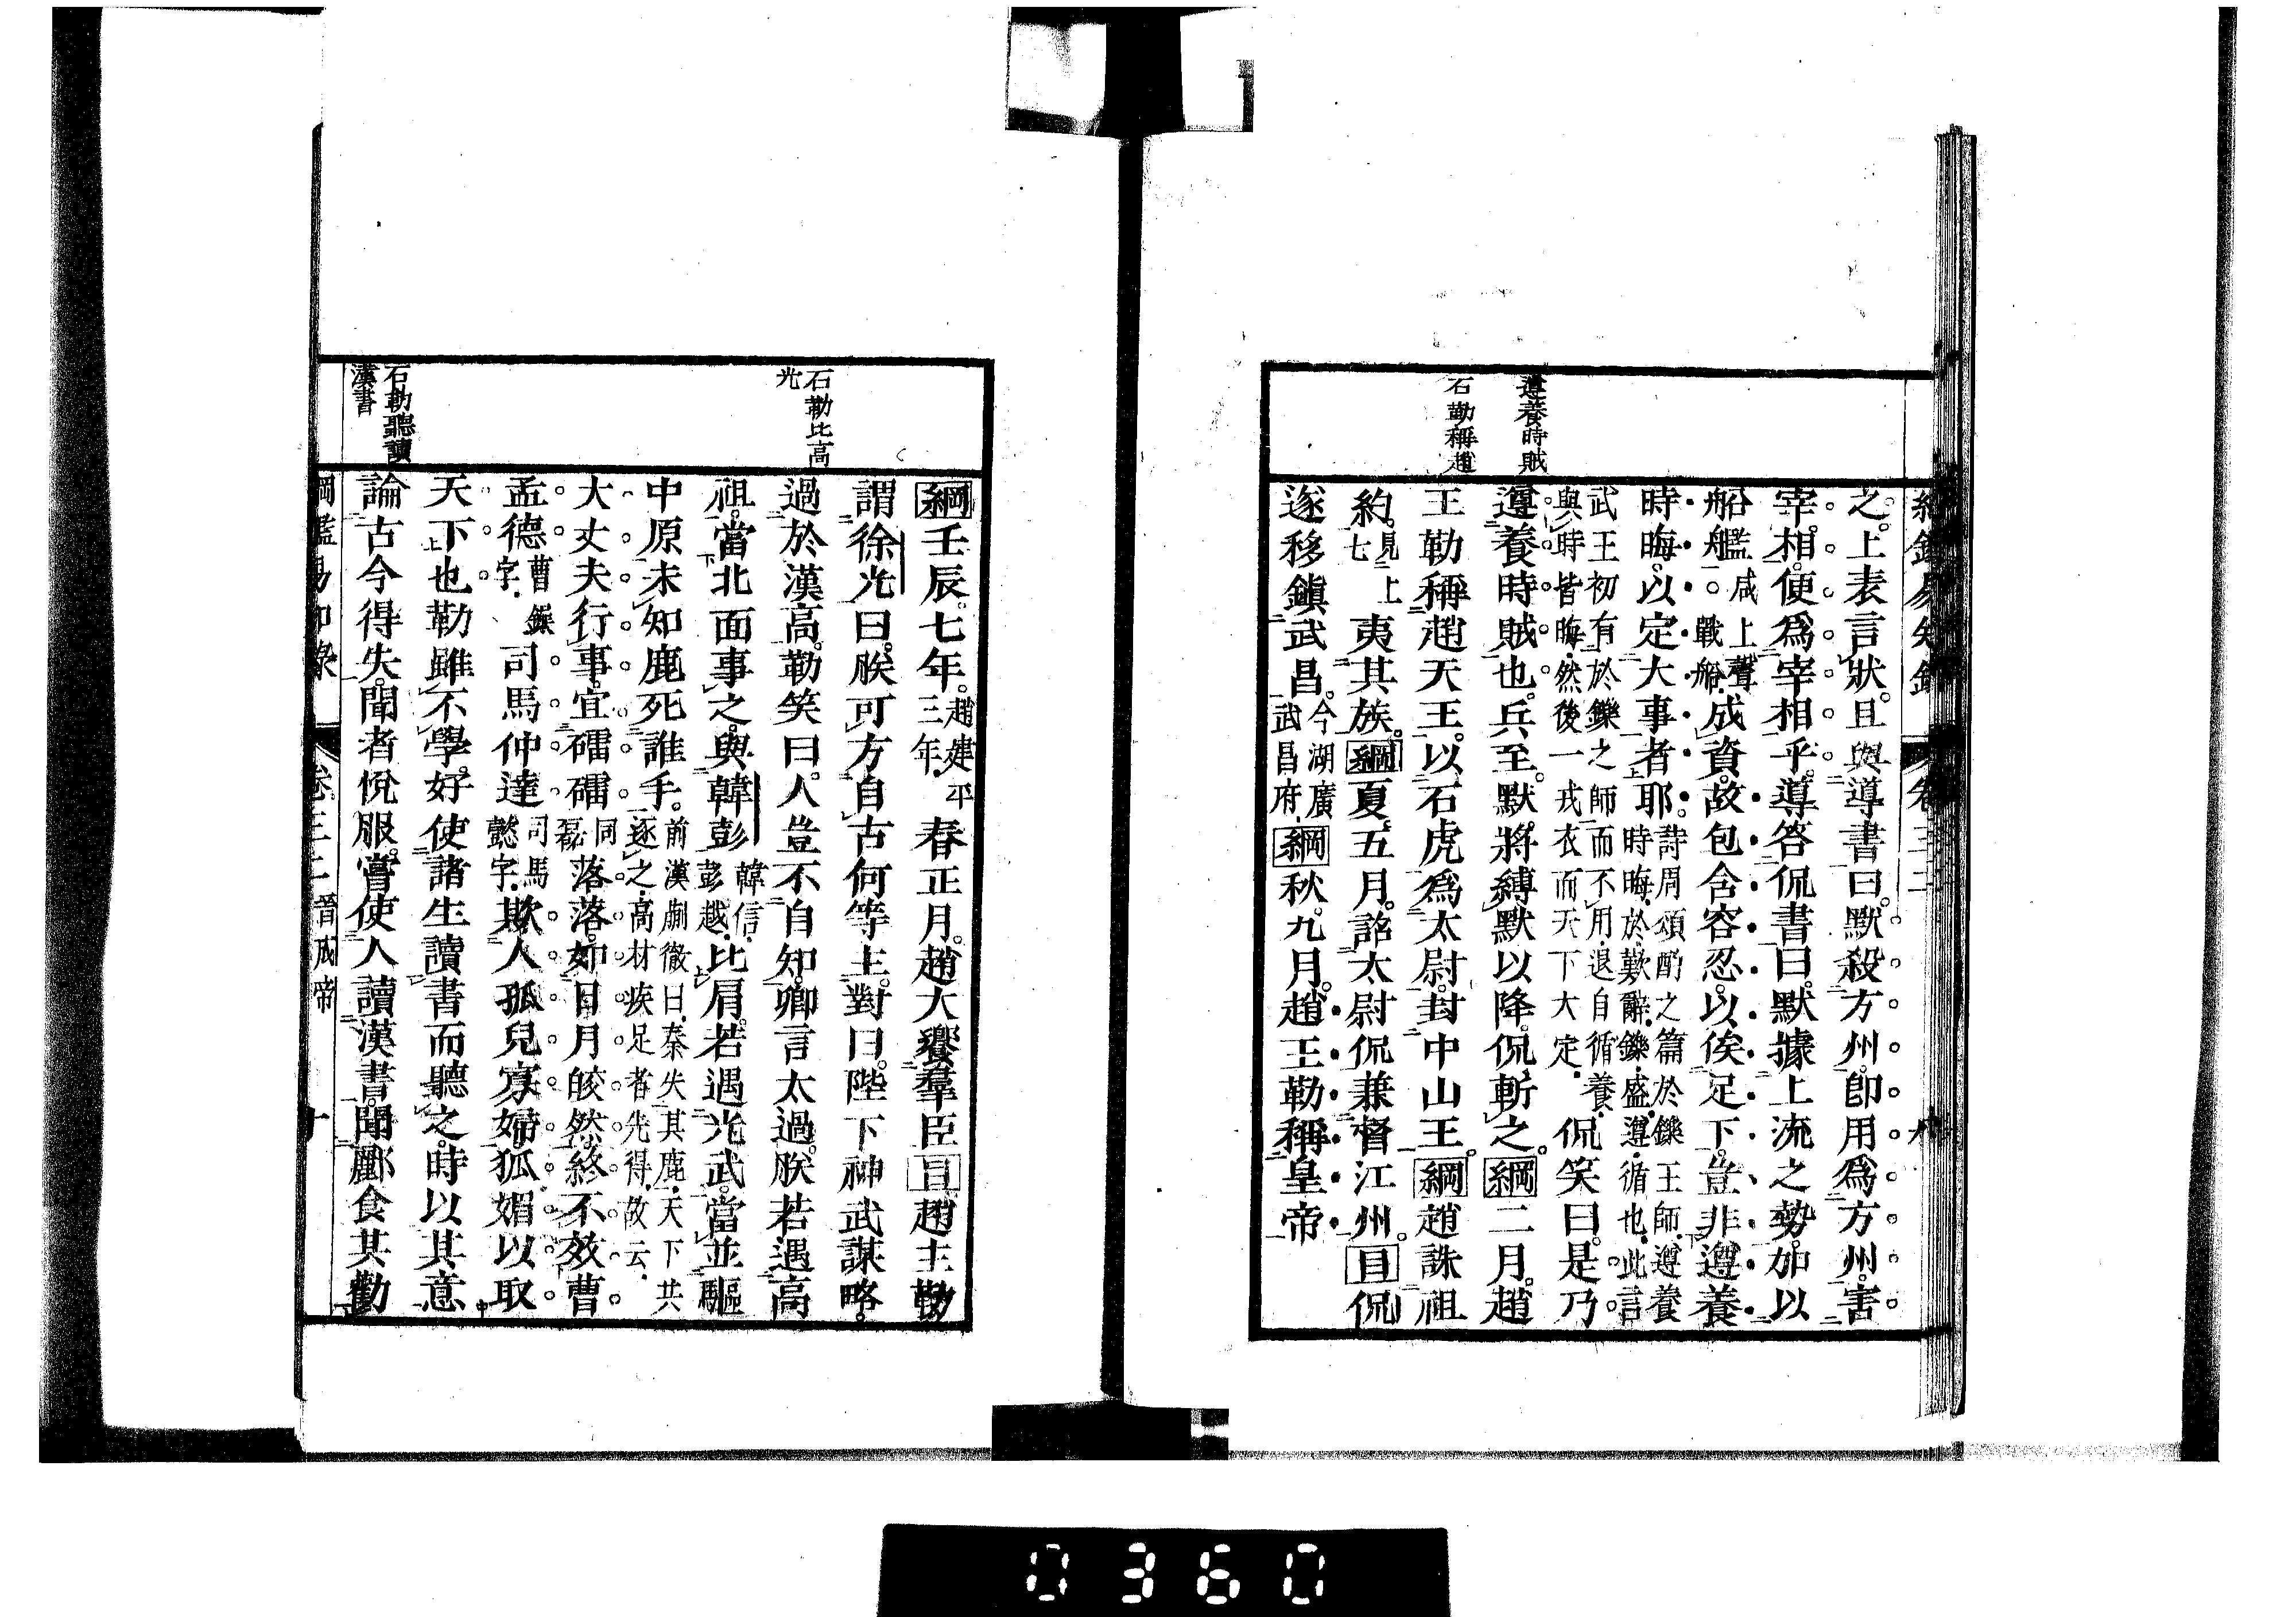 遵養時賊
石勒稱趙
之。上表言狀。且與導書曰。默殺方州。卽用爲方州。害
宰相。便爲宰相乎。導答侃書曰。默據上流之勢。加以
船艦艦咸上聲。戰船。成資。故包含容忍。以俟足下。豈非遵養
時晦。以定大事者耶。詩周頌酌之篇於鑠王師遵養時晦。於歎辭。鑠。盛。遵。循也。此言
武王初有於鑠之師而不用。退自循養。與時皆晦。然後一戎衣而天下大定。侃笑曰。是乃
遵養時賊也。兵至。默將縛默以降。侃斬之。綱二月。趙
王勒稱趙天王。以石虎爲太尉。封中山王。綱趙誅祖
約。見上七夷其族。綱夏。五月。詔太尉侃兼督江州。目侃
遂移鎭武昌。今湖廣武昌府。綱秋。九月。趙王勒稱皇帝
石勒比高
光
石勒聽讀
漢書
綱壬辰。七年。趙建平三年。春正月。趙大饗羣臣目趙主勒
謂徐光曰。朕可方自古何等主。對曰。陛下神武謀略。
過於漢高。勒笑曰。人豈不自知。卿言太過。朕若遇高
祖。當北面事之。與韓彭韓信。彭越。比肩。若遇光武。當並驅
中原未知鹿死誰手。前漢蒯徹曰。秦失其鹿。天下共逐之。高材疾足者先得。故云。
大丈夫行事。宜礌礌同磊落落。如日月皎然。終不效曹
孟德曹操字。司馬仲達司馬懿字。欺人孤兒寡婦。狐媚以取
天下也勒雖不學。好使諸生讀書而聽之。時以其意
論古今得失。聞者悅服。嘗使人讀漢書。聞酈食其勸
綱鑑易知錄 卷三二 晉成帝 十